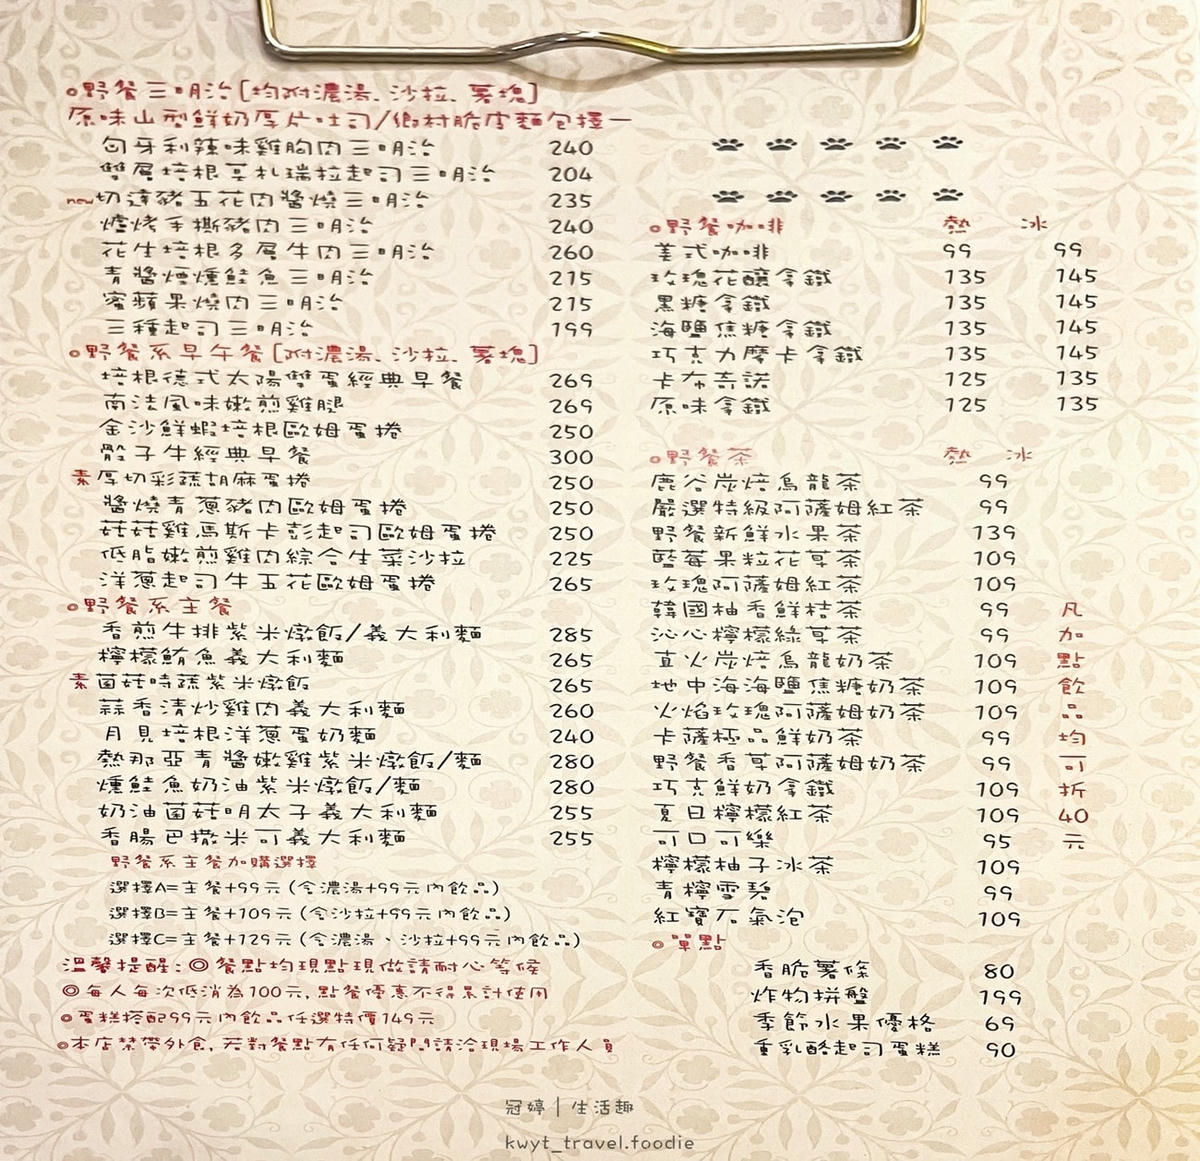 ◎野餐三明治[均附濃湯、沙拉、薯塊]
原味山型鮮奶厚片吐司/鄉村脆皮麵包擇一
匈牙利辣味雞胸肉三明治 240
雙層培根莫札瑞拉起司三明治 204
new切達豬五花肉醬燒三明治 235
爐烤手撕豬肉三明治 240
花生培根多層牛肉三明治 260
青醬煙燻鮭魚三明治 215
蜜蘋果燒肉三明治 215
三種起司三明治 199
◎野餐系早午餐[附濃湯、沙拉、薯塊]
培根德式太陽雙蛋經典早餐 269
南法風味嫩煎雞腿 269
金沙鮮蝦培根歐姆蛋捲 250
骰子牛經典早餐 300
素厚切彩蔬胡麻蛋捲 250
醬燒青蔥豬肉歐姆蛋捲 250
菇菇雞馬斯卡彭起司歐姆蛋捲 250
低脂嫩煎雞肉綜合生菜沙拉 225
洋蔥起司牛五花歐姆蛋捲 265
◎野餐系主餐
香煎牛排紫米燉飯/義大利麵 285
檸檬鮪魚義大利麵 265
素菌菇時蔬紫米燉飯 265
蒜香清炒雞肉義大利麵 260
月見培根洋蔥蛋奶麵 240
熱那亞青醬嫩雞紫米燉飯/麵 280
燻鮭魚奶油紫米燉飯/麵 280
奶油菌菇明太子義大利麵 255
香腸巴撒米可義大利麵 255
野餐系主餐加購選擇
選擇A=主餐+99元(含濃湯+99元內飲品)
選擇B=主餐+109元(含沙拉+99元內飲品)
選擇C=主餐+129元(含濃湯、沙拉+99元內飲品)
溫馨提醒:◎餐點均現點現做請耐心等候
◎每人每次低消為100元,點餐優惠不得累計使用
◎蛋糕搭配99元內飲品任選特價149元
◎本店禁帶外食,若對餐點有任何疑問請洽現場工作人員
◎野餐咖啡 熱 冰
美式咖啡 99 99
玫瑰花釀拿鐵 135 145
黑糖拿鐵 135 145
海鹽焦糖拿鐵 135 145
巧克力摩卡拿鐵 135 145
卡布奇諾 125 135
原味拿鐵 125 135
◎野餐茶 熱 冰
鹿谷炭焙烏龍茶 99
嚴選特級阿薩姆紅茶 99
野餐新鮮水果茶 139
藍莓果粒花草茶 109
玫瑰阿薩姆紅茶 109
韓國柚香鮮桔茶 99
沁心檸檬綠草茶 99
直火炭焙烏龍奶茶 109
地中海海鹽焦糖奶茶 109
火焰玫瑰阿薩姆奶茶 109
卡薩極品鮮奶茶 99
野餐香草阿薩姆奶茶 99
巧克鮮奶拿鐵 109
夏日檸檬紅茶 109
可口可樂 95
檸檬柚子冰茶 109
青檸雪碧 99
紅寶石氣泡 109
凡加點飲品均可折40元
◎單點
香脆薯條 80
炸物拼盤 199
季節水果優格 69
重乳酪起司蛋糕 90
冠婷 | 生活趣
kwyt_travel.foodie